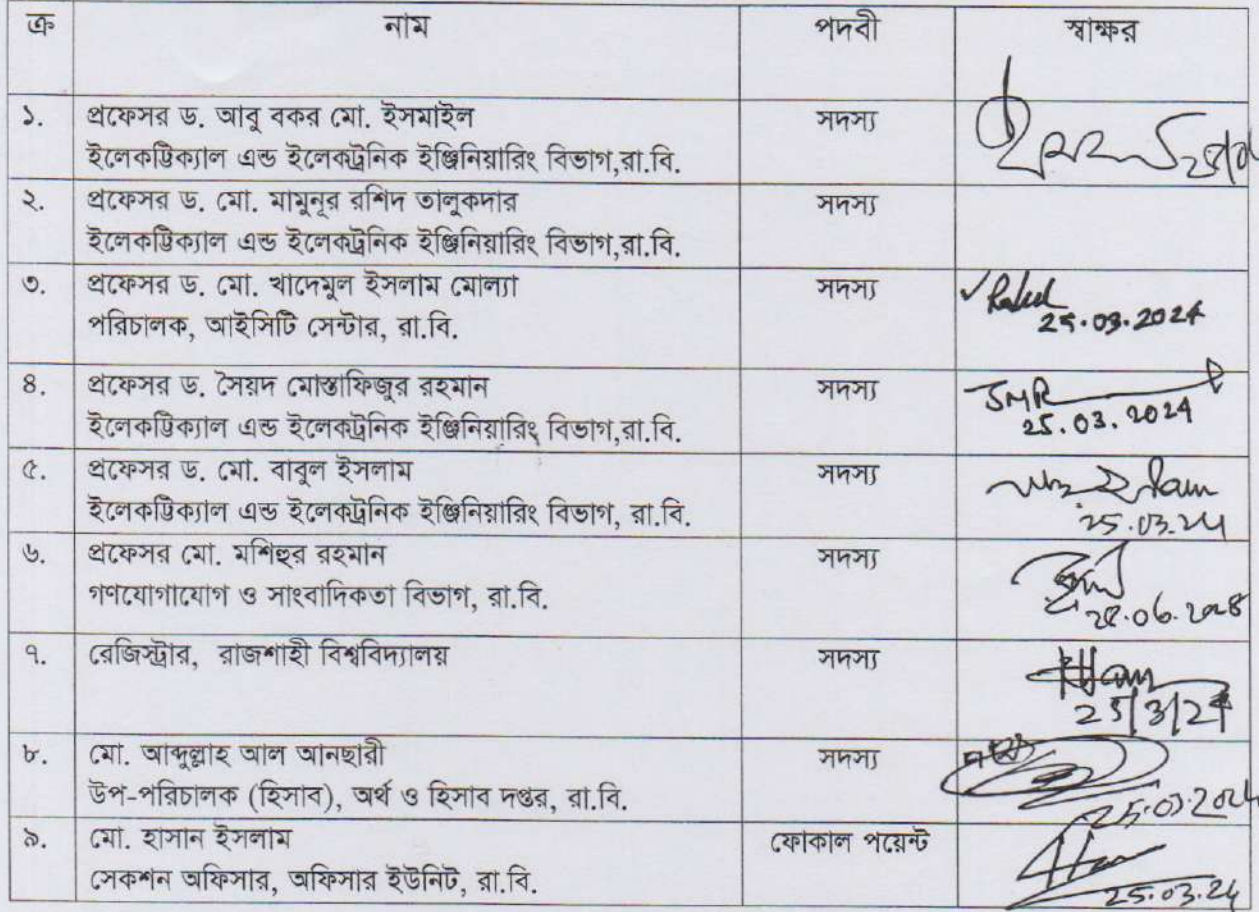 ক্র নাম পদবী স্বাক্ষর
১. প্রফেসর ড. আবু বকর মো. ইসমাইল সদস্য
ইলেকট্রিক্যাল এন্ড ইলেকট্রনিক ইঞ্জিনিয়ারিং বিভাগ,রা.বি.
২. প্রফেসর ড. মো. মামুনূর রশিদ তালুকদার সদস্য
ইলেকট্রিক্যাল এন্ড ইলেকট্রনিক ইঞ্জিনিয়ারিং বিভাগ,রা.বি.
৩. প্রফেসর ড. মো. খাদেমুল ইসলাম মোল্যা সদস্য
পরিচালক, আইসিটি সেন্টার, রা.বি. 25.03.2024
৪. প্রফেসর ড. সৈয়দ মোস্তাফিজুর রহমান সদস্য SMR
ইলেকট্রিক্যাল এন্ড ইলেকট্রনিক ইঞ্জিনিয়ারিং বিভাগ,রা.বি. 25.03.2024
৫. প্রফেসর ড. মো. বাবুল ইসলাম সদস্য
ইলেকট্রিক্যাল এন্ড ইলেকট্রনিক ইঞ্জিনিয়ারিং বিভাগ, রা.বি. 25.03.24
৬. প্রফেসর মো. মশিহুর রহমান সদস্য
গণযোগাযোগ ও সাংবাদিকতা বিভাগ, রা.বি.
৭. রেজিস্ট্রার, রাজশাহী বিশ্ববিদ্যালয় সদস্য
25/3/24
৮. মো. আব্দুল্লাহ আল আনছারী সদস্য
উপ-পরিচালক (হিসাব), অর্থ ও হিসাব দপ্তর, রা.বি. 25.03.2024
৯. মো. হাসান ইসলাম ফোকাল পয়েন্ট
সেকশন অফিসার, অফিসার ইউনিট, রা.বি. 25.03.24